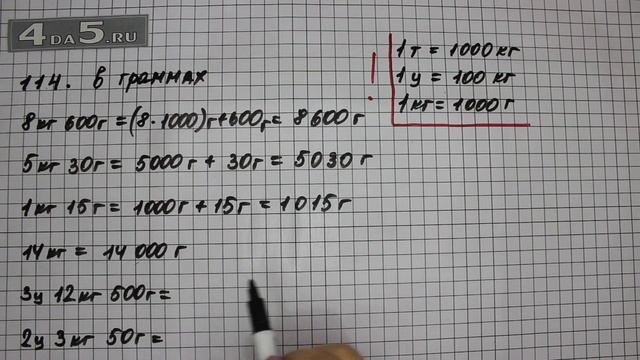 4DA5.RU
114. В граммах
8кг 600г =(8·1000)г+600г= 8600г
5кг 30г = 5000г + 30г = 5030г
1кг 15г = 1000г + 15г = 1015г
14кг = 14 000 г
3ц 12кг 600г=
2ц 3кг 50г=
! 1т = 1000кг
1ц = 100 кг
1кг = 1000г